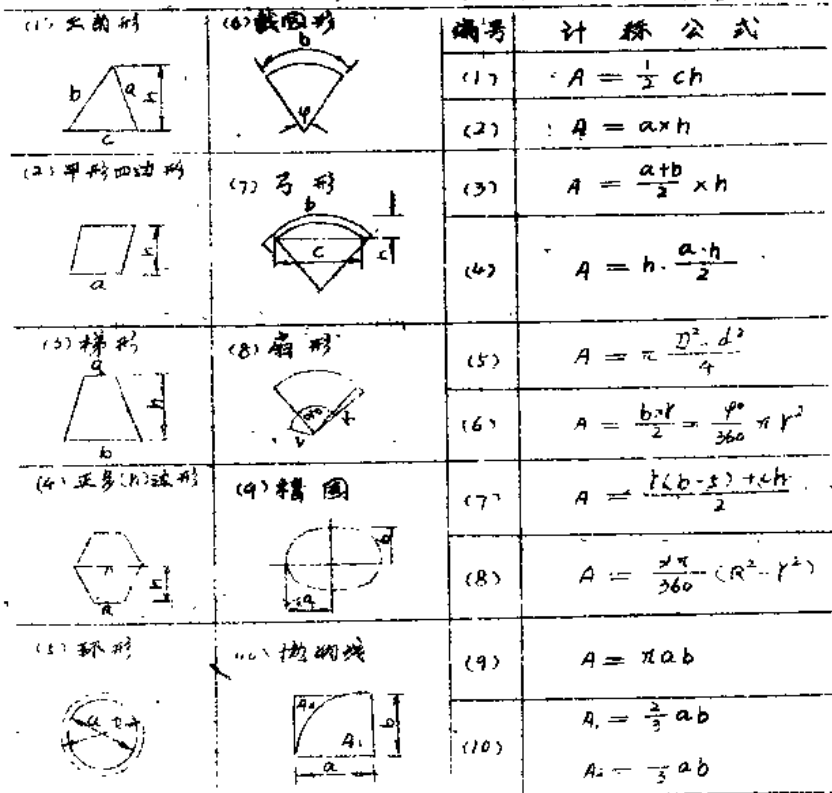 (1) 三角形
b a h
c
(2) 平形四边形
h
a
(3) 梯形
a
h
b
(4) 正多(n)边形
n
h
a
(5) 环形
d D
(6) 截圆形
b
φ
(7) 弓形
b
c
h
(8) 扇形
(9) 椭圆
b
a
抛物线
A₂
A₁
b
a
编号 计称公式
(1) A = 1/2 ch
(2) A = a×h
(3) A = (a+b)/2 ×h
(4) A = n·(a·h)/2
(5) A = π (D²-d²)/4
(6) A = (b·r)/2 = φ°/360 π r²
(7) A = (r(b-s)+ch)/2
(8) A = π/360 (R²-r²)
(9) A = πab
(10) A₁ = 2/3 ab
A₂ = /3 ab